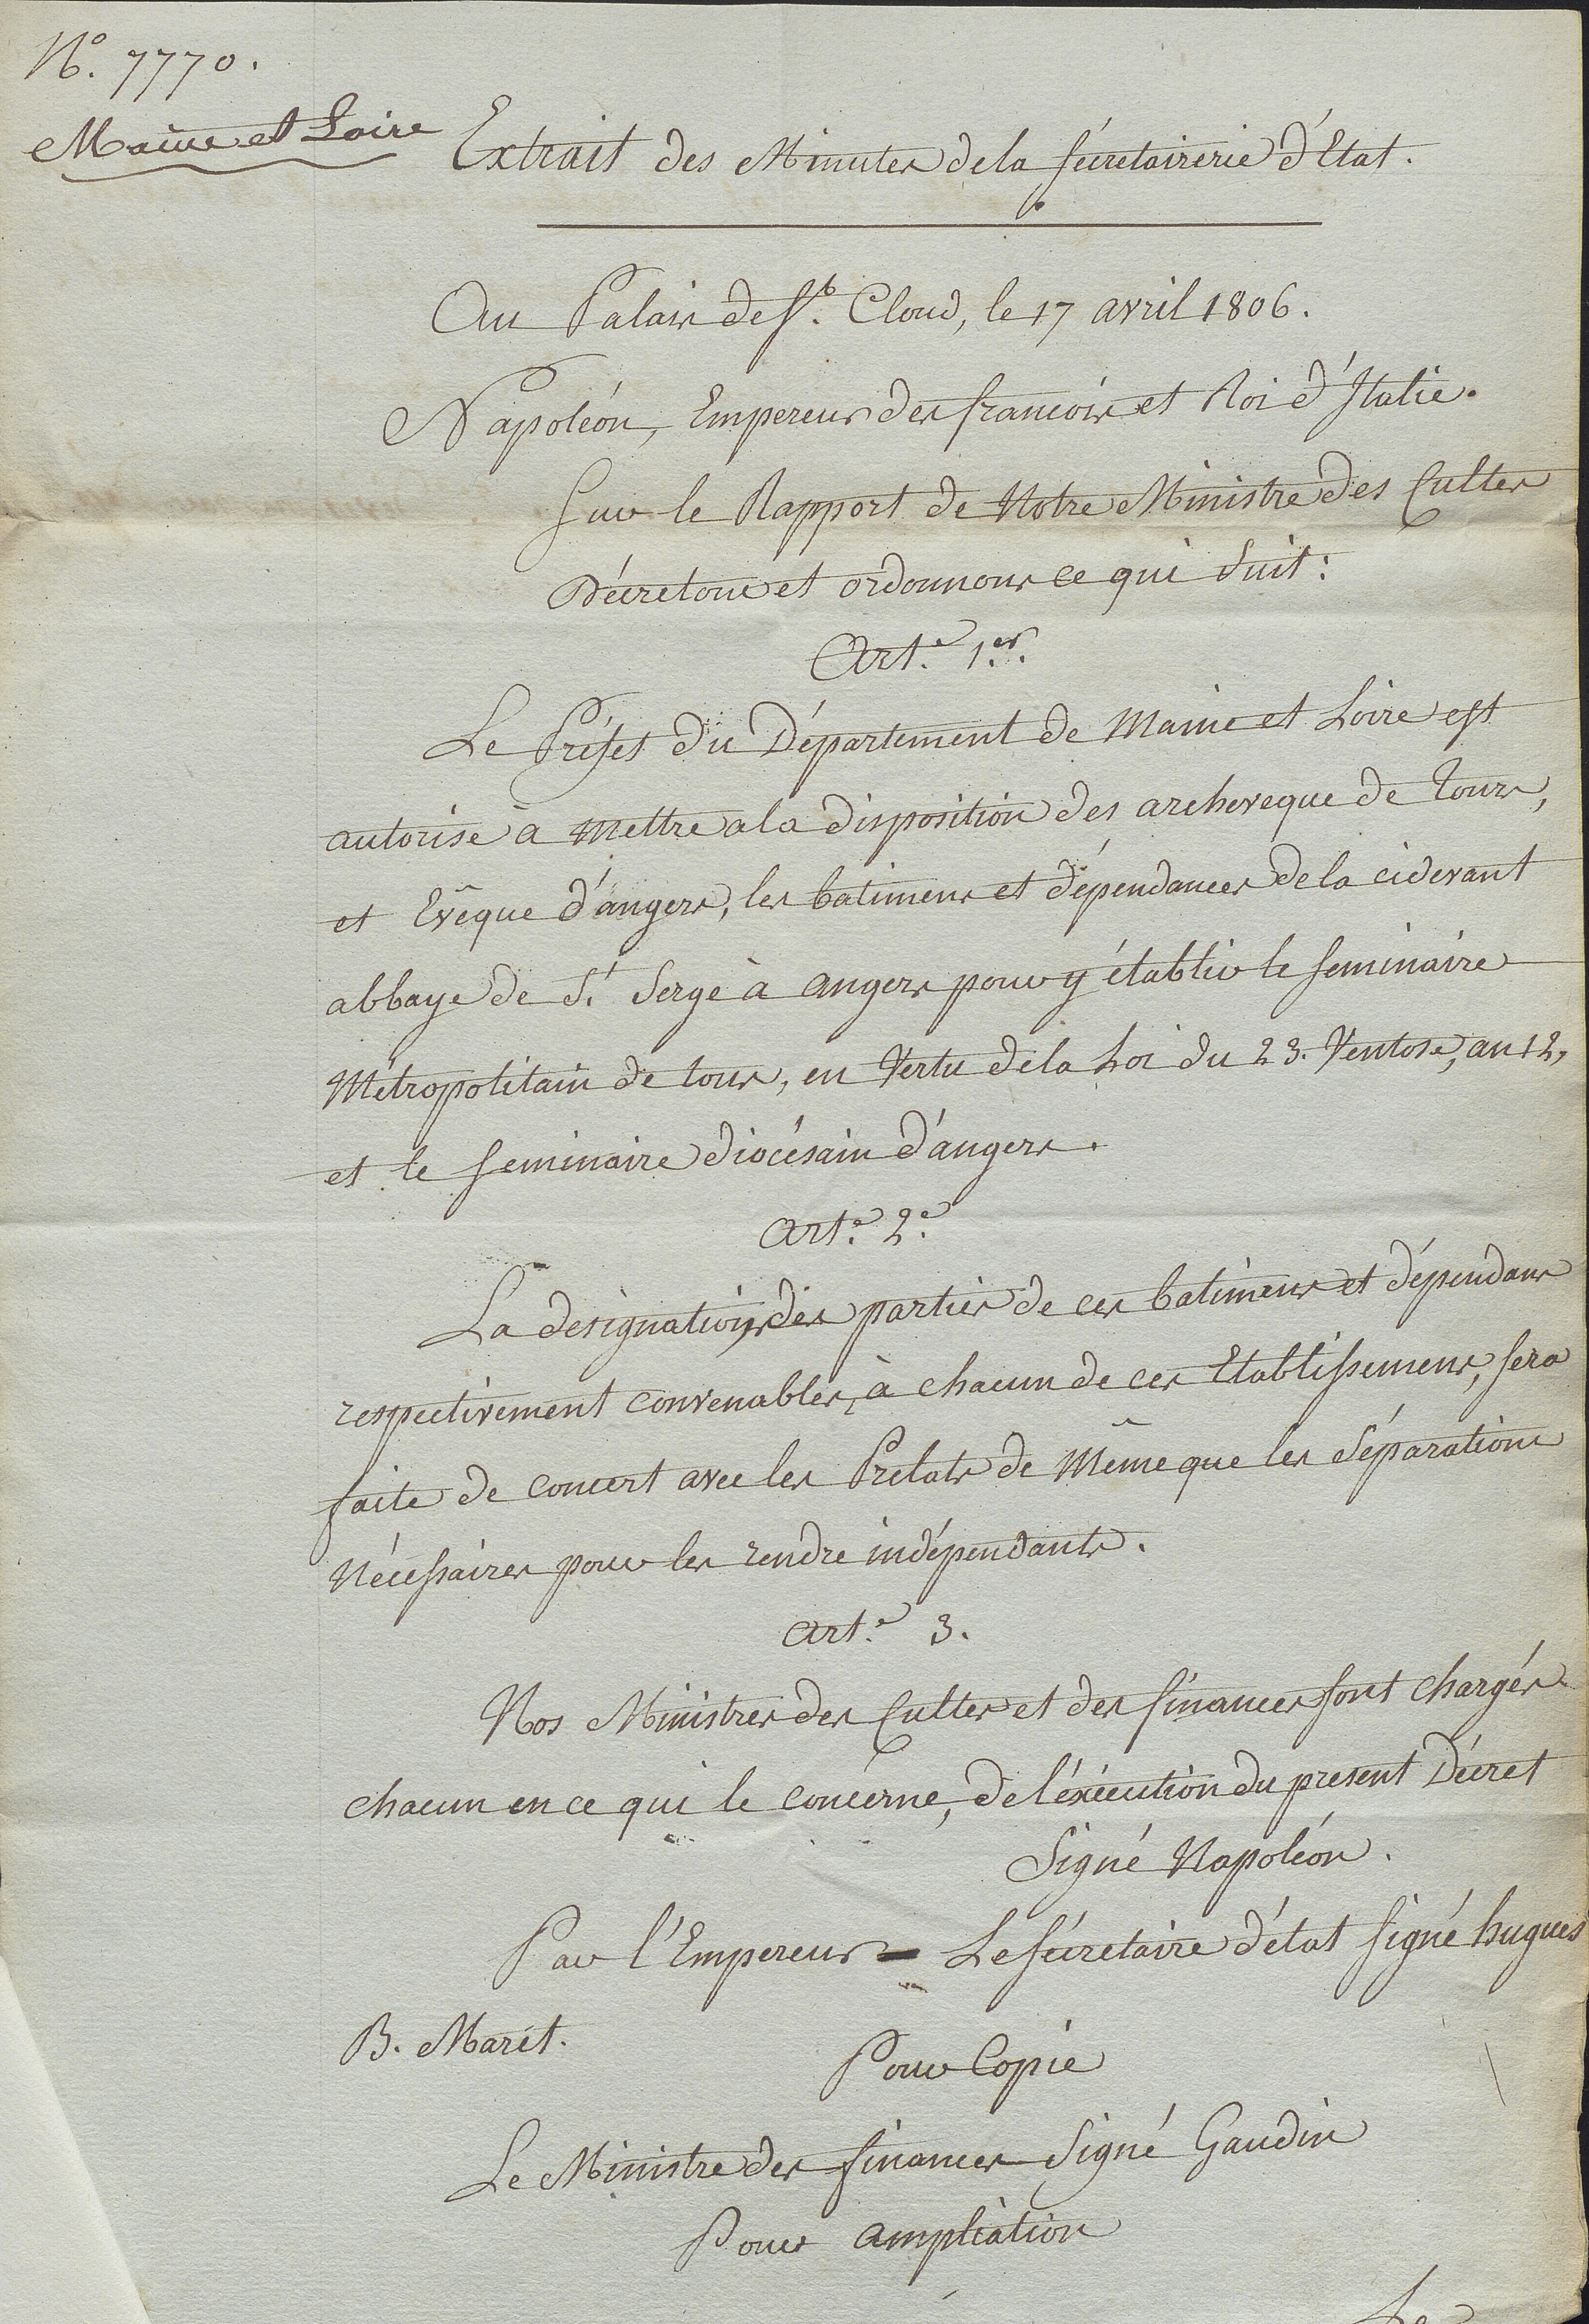 N.° 7770.
Maine et Loire
Extrait des Minutes de la sécretairerie d'Etat.
Au Palais de S.t Cloud, le 17 avril 1806.
Napoléon, Empereur des francois et Roi d'Italie.
Sur le Rapport de Notre Ministre des Cultes
Décretons et ordonnons ce qui suit:
Art.e 1.er.
Le Préfet du Département de Maine et Loire est
autorisé à mettre a la disposition des archeveque de tours,
et Evêque d'angers, les batimens et dépendances de la cidevant
abbaye de S.t Serge à angers pour y établir le seminaire
Métropolitain de tours, en Vertu de la Loi du 23. Ventose, an 12,
et le seminaire diocésain d'angers.
art.e 2.e
La designation des parties de ces batimens et dépendans
respectivement convenables, à chacun de ces Etablissemens, sera
faite de concert avec les Prelats de Même que les séparations
Nécessaires pour les rendre indépendants.
art.e 3.
Nos Ministres des Cultes et des finances sont chargés
chacun en ce qui le concerne, de l'éxécution du present Décret
Signé Napoléon.
Par l'Empereur - Le sécretaire d'état signé hugues
B. Maret.
Pour Copie
Le Ministre des finances Signé Gaudin
Pour ampliation
Le